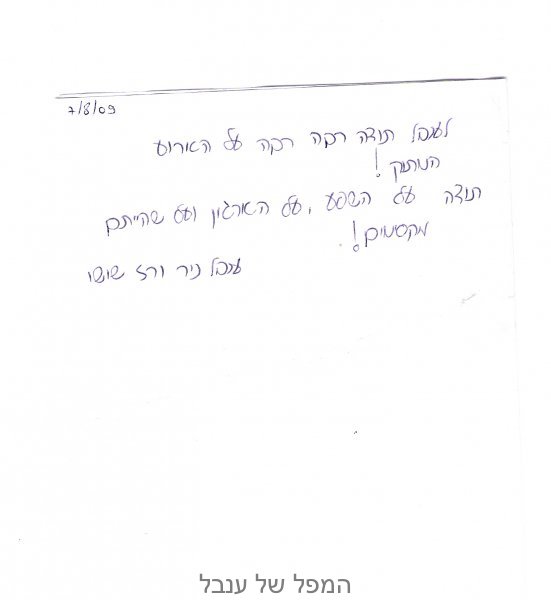 7/8/09
לענבל תודה רבה רבה על האירוע
המתוק!
תודה על השפע, על הארגון ועל שהייתם
מקסימים!
ענבל ניר ורז שושו
המפל של ענבל